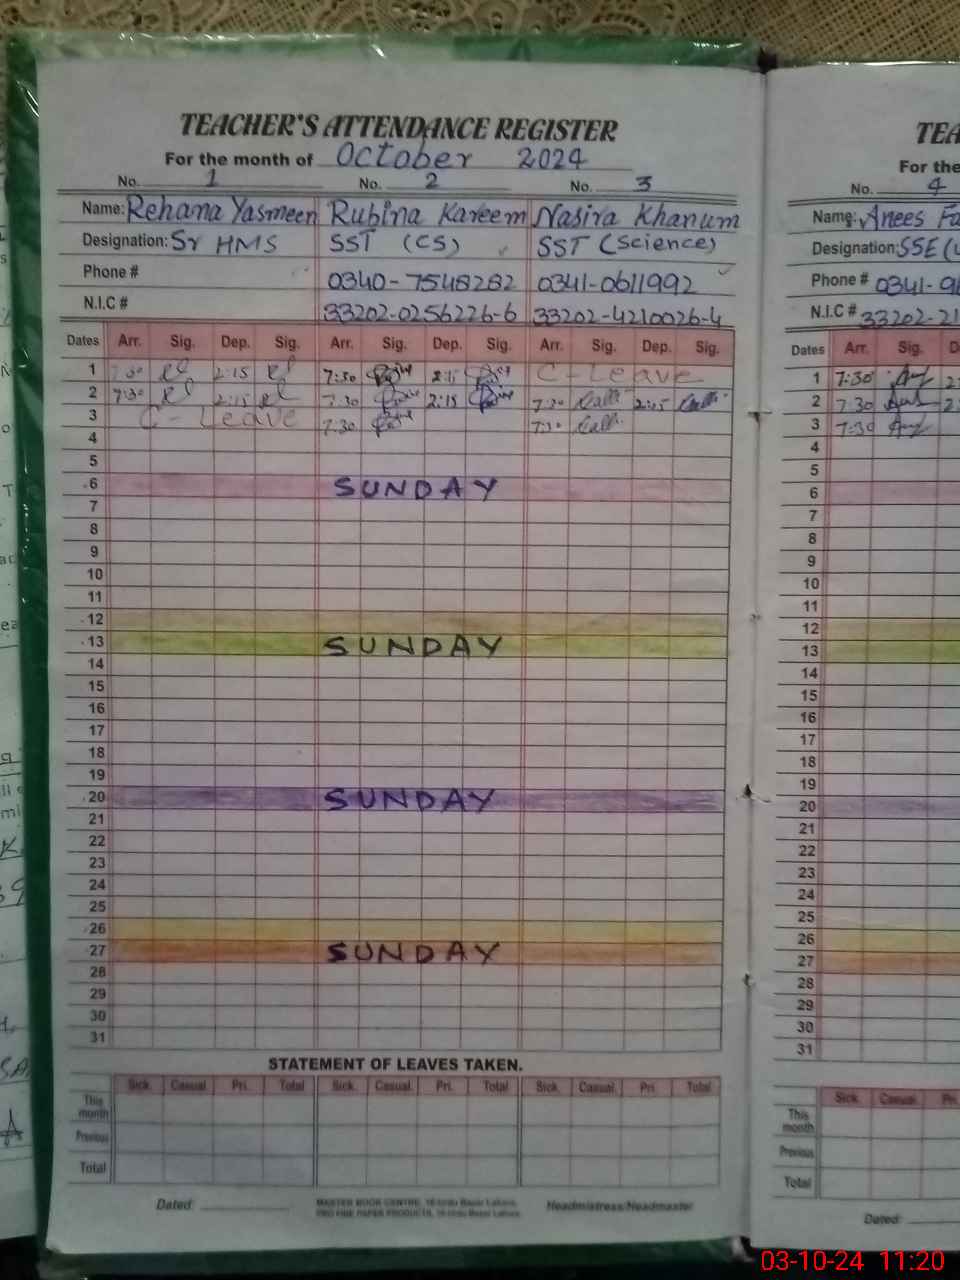 TEACHER'S ATTENDANCE REGISTER
For the month of October 2024
No. 1 No. 2 No. 3
Name: Rehana Yasmeen Rubina Kareem Nasira Khanum
Designation: Sr HMS SST (CS) SST (Science)
Phone # 0340-7548282 0341-0611992
N.I.C # 33202-0256226-6 33202-4210026-4
Dates Arr. Sig. Dep. Sig. Arr. Sig. Dep. Sig. Arr. Sig. Dep. Sig.
1 7:30 2:15 7:30 2:15 C-Leave
2 7:30 2:15 7:30 2:15 7:30 2:15
3 C-Leave 7:30 7:30
4
5
6 SUNDAY
7
8
9
10
11
12
13 SUNDAY
14
15
16
17
18
19
20 SUNDAY
21
22
23
24
25
26
27 SUNDAY
28
29
30
31
STATEMENT OF LEAVES TAKEN.
Sick. Casual. Pri. Total Sick. Casual. Pri. Total Sick. Casual. Pri. Total
This month
Previous
Total
Dated: MASTER BOOK CENTRE, Headmistress/Headmaster
TEA
For the
No. 4
Name: Anees Fa
Designation: SSE (
Phone # 0341-9
N.I.C # 33202-21
Dates Arr. Sig. D
1 7:30
2 7:30
3 7:30
4
5
6
7
8
9
10
11
12
13
14
15
16
17
18
19
20
21
22
23
24
25
26
27
28
29
30
31
Sick. Casual. Pri.
This month
Previous
Total
Dated:
03-10-24 11:20